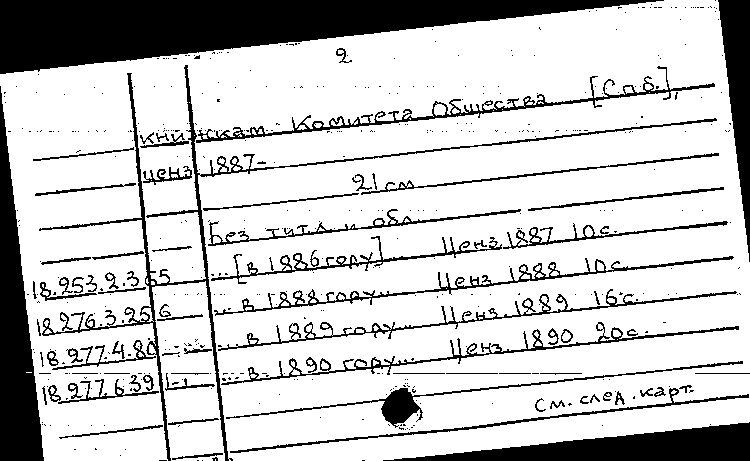 2
книжкам Комитета Общества [Спб.],
ценз. 1887-
21 см
Без тит.л. и обл.
18.253.2.365 ...[в 1886 году] Ценз. 1887 10 с.
18.276.3.256 ...в 1888 году... Ценз. 1888 10 с.
18.277.4.80 ...в 1889 году... Ценз. 1889. 16 с.
18.277.639 ...в 1890 году... Ценз. 1890. 20 с.
См. след. карт.